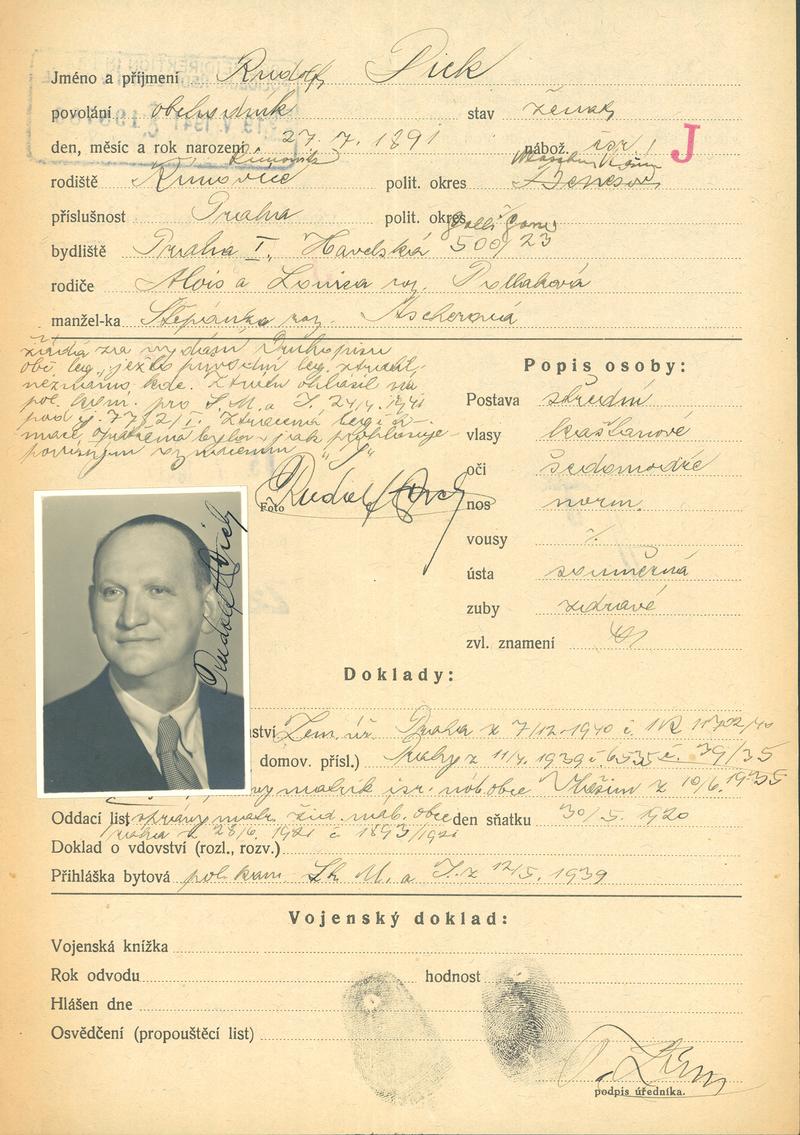 Jméno a příjmení Rudolf Pick
povolání obchodník stav ženat
den, měsíc a rok narození 27. 7. 1891 nábož. isr. J
rodiště Křivsoudov polit. okres Benešov
příslušnost Praha polit. okres
bydliště Praha I, Havelská 500/23
rodiče Alois a Louisa roz. Pollaková
manžel-ka Štěpánka roz. Ascherová
žádá za vydání Druhopisu
obč. leg., ježto původní leg. ztratil,
neznámo kde. Ztrátu ohlásil na
pol. kom. pro S. M. a J. 24/4. 1941
pod čj. 7712/I. Ztracená legiti-
mace, opatřena byla jak prohlašuje
povinným znamením "J"
Popis osoby:
Postava střední
vlasy kaštanové
oči šedomodré
nos norm.
vousy
ústa souměrná
zuby zdravé
zvl. znamení
Foto Rudolf Pick
Rudolf Pick
Doklady:
ství Zem. úř. Praha z 7/12 1940 č.
domov. přísl.) Prahy z 11/4. 1939 č. 6535 č. 39/35
matrik isr. náb. obce Vlašim z 10/6. 1935
Oddací list správy matr. žid. náb. obce den sňatku 30/5. 1920
Praha z 28/6. 1921 č. 1893/1921
Doklad o vdovství (rozl., rozv.)
Přihláška bytová pol. kom. St. M. a J. z 12/5. 1939
Vojenský doklad:
Vojenská knížka
Rok odvodu hodnost
Hlášen dne
Osvědčení (propouštěcí list)
podpis úředníka.